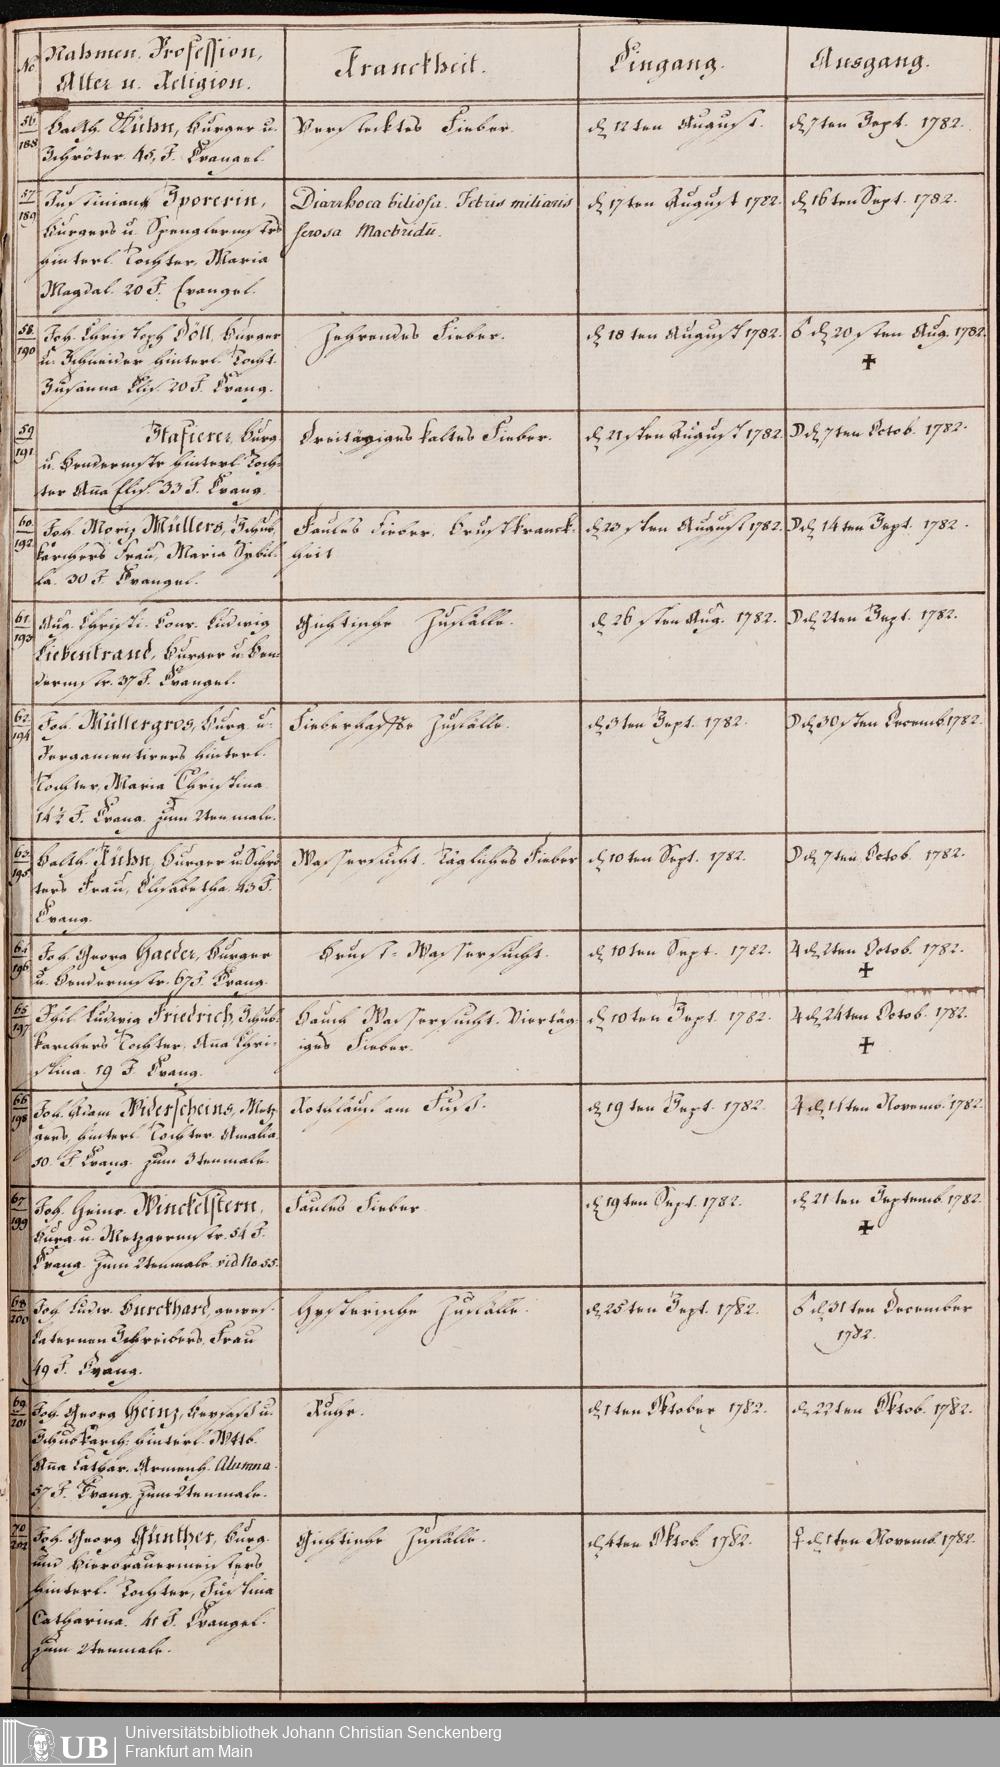 No
Nahmen. Profession,
Alter u. Religion.
Kranckheit.
Eingang.
Ausgang.
56.
188
Balth. Kühn, Burger u.
Schröter. 45. J. Evangel.
Verstecktes Fieber.
d. 12ten August.
d. 7ten Sept. 1782.
57
189
Justinians Sporerin,
Burgers u. Spenglermstrs
hinterl. Tochter, Maria
Magdal. 20 J. Evangel.
Diarrhoea biliosa. Febris miliaris
serosa Macbridii.
d. 17ten August 1782.
d. 16ten Sept. 1782.
58.
190
Joh. Christoph Döll, Burger
u. Schneider hinterl. Tocht.
Susanna Elis. 20 J. Evang.
Zehrendes Fieber.
d. 18ten August 1782.
d. 20sten Aug. 1782.
✝
59
191
Stafierer, Burg.
u. Bendermstr hinterl. Toch-
ter Aña Elis. 33 J. Evang.
Dreitägiges kaltes Fieber.
d. 21sten August 1782.
d. 7ten Octob. 1782.
60.
192.
Joh. Moriz Müllers, Schub-
karchers Frau, Maria Sybil-
la. 30 J. Evangel.
Faules Fieber. Brustkranck-
heit
d. 23sten August 1782.
d. 14ten Sept. 1782.
61.
193
Aug. Christi. Conr. Ludwig
Liebentrand, Burger u. Ben-
dermstr. 37 J. Evangel.
Gichtische Zufälle.
d. 26sten Aug. 1782.
d. 2ten Sept. 1782.
62.
194
Joh. Müllergros, Burg. u.
Pergamentirers hinterl.
Tochter, Maria Christina
14½ J. Evang. zum 2tenmale.
Fieberhaffte Zufälle.
d. 3ten Sept. 1782.
d. 30sten Decemb. 1782.
63.
195
Balth. Kühn, Burger u. Schrö-
ters Frau, Elisabetha. 43 J.
Evang.
Wassersucht. Tägliches Fieber
d. 10ten Sept. 1782.
d. 7ten Octob. 1782.
64
196
Joh. Georg Haeder, Burger
u. Bendermstr. 67 J. Evang.
Brust-Wassersucht.
d. 10ten Sept. 1782.
d. 2ten Octob. 1782.
✝
65
197
Phil. Ludwig Friedrich, Schub-
karchers Tochter, Aña Chri-
stina. 19 J. Evang.
Bauch Wassersucht. Viertäg-
iges Fieber.
d. 10ten Sept. 1782.
d. 24ten Octob. 1782.
✝
66
198
Joh. Adam Widerscheins, Metz-
gers, hinterl. Tochter Amalia
J. Evang. zum 3tenmale.
Rothlauf am Fuß.
d. 19ten Sept. 1782.
d. 14ten Novemb. 1782.
67
199
Joh. Heinr. Winckelstern,
Burg. u. Metzgermstr. 54 J.
Evang. zum 2tenmale. vid No. 55.
Faules Fieber.
d. 19ten Sept. 1782.
d. 21ten Septemb. 1782.
✝
68
200
Joh. Ludw. Burckhard, gewes.
Laternen Schreibers Frau
49 J. Evang.
Hysterische Zufälle.
d. 25ten Sept. 1782.
d. 31ten December
1782.
69
201
Joh. Georg Heinz, Beysaß u.
Schubkarch. hinterl. Wttb.
Aña Cathar. Armenh. Alumna.
57 J. Evang. zum 2tenmale.
Ruhr.
d. 1ten Oktober 1782.
d. 22ten Oktob. 1782.
70
202
Joh. Georg Günther, Burg.
und Bierbrauermeisters
hinterl. Tochter, Justina
Catharina. 41 J. Evangel.
zum 2tenmale.
Gichtische Zufälle.
d. 4ten Oktob. 1782.
♀ d. 1ten Novemb. 1782.
UB
Universitätsbibliothek Johann Christian Senckenberg
Frankfurt am Main